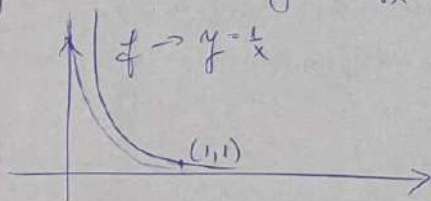 f → y = 1/x
(1,1)